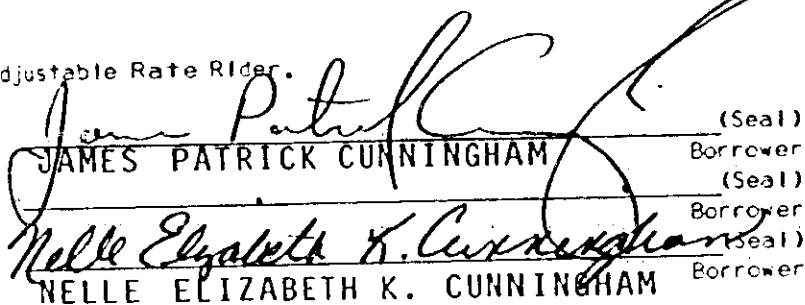 djustable Rate Rider.
James Patrick Cunningham (Seal)
JAMES PATRICK CUNNINGHAM Borrower
(Seal)
Borrower
Nelle Elizabeth K. Cunningham (Seal)
NELLE ELIZABETH K. CUNNINGHAM Borrower